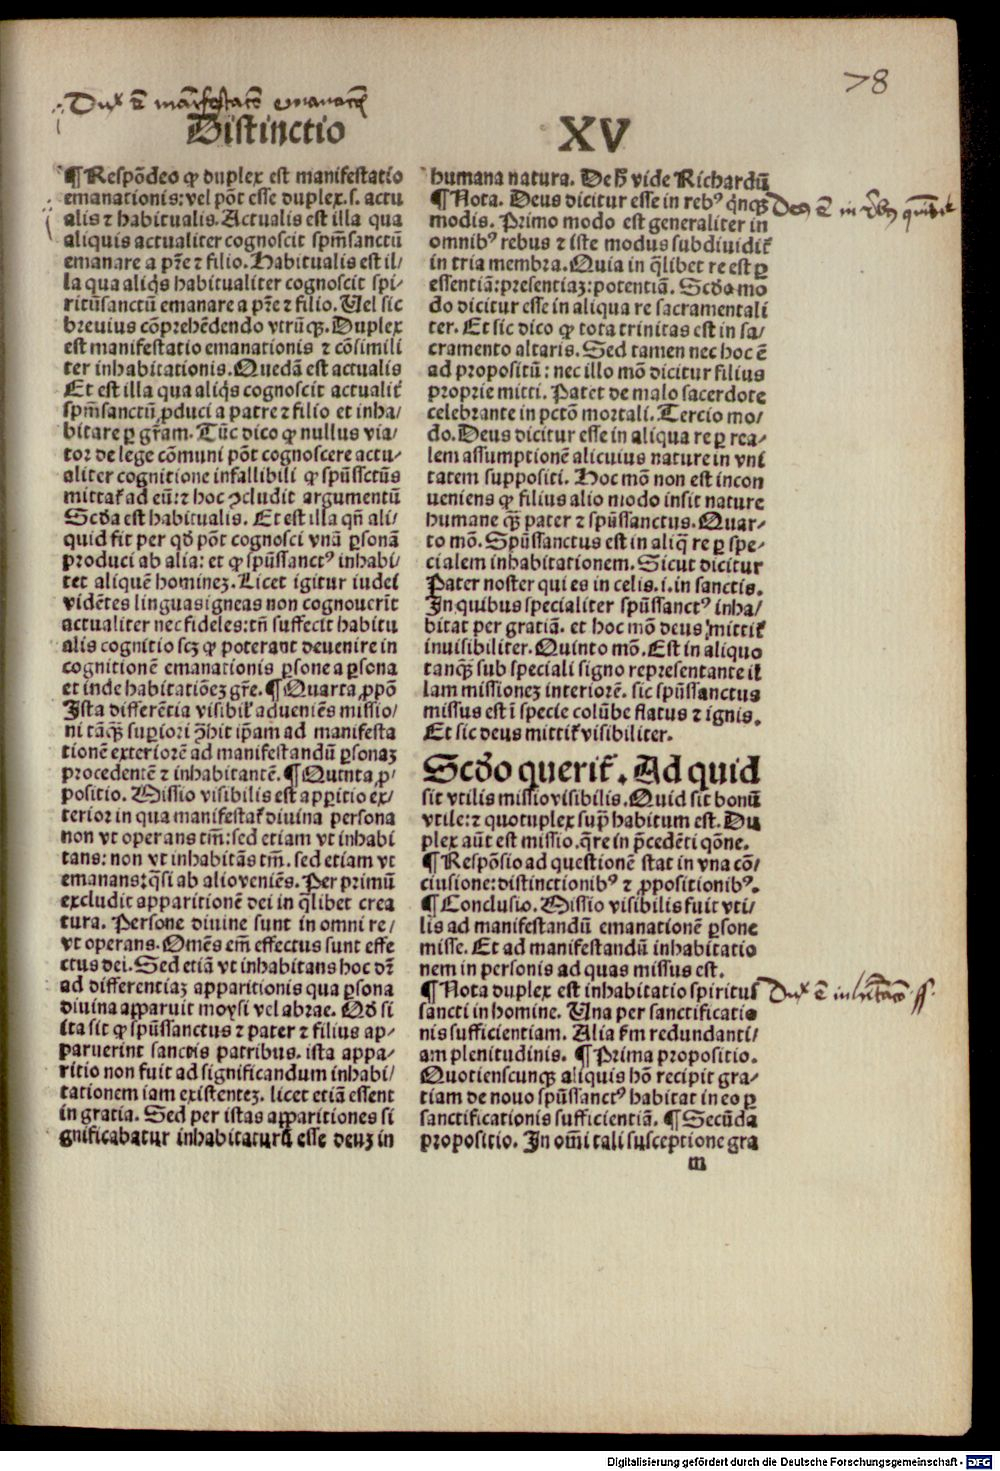 78
Distinctio XV
¶ Respōdeo ꝙ duplex est manifestatio
emanationis: vel pōt esse duplex.s. actu
alis ⁊ habitualis. Actualis est illa qua
aliquis actualiter cognoscit spm̄sanctū
emanare a pr̄e ⁊ filio. Habitualis est il/
la qua aliq̇s habitualiter cognoscit spi-
ritūsanctū emanare a pr̄e ⁊ filio. Uel sic
breuius cōprehēdendo vtrūqꝫ. Duplex
est manifestatio emanationis ⁊ cōsimili
ter inhabitationis. Quedā est actualis
Et est illa qua aliq̇s cognoscit actualiť
spm̄sanctū ꝓduci a patre ⁊ filio et inha/
bitare ꝑ gr̄am. Tūc dico ꝙ nullus via/
tor de lege cōmuni pōt cognoscere actu-
aliter cognitione infallibili ꝙ spūssctūs
mittať ad eū: ⁊ hoc ↄcludit argumentū
Scd̄a est habitualis. Et est illa qn̄ ali/
quid fit per qd̄ pōt cognosci vnā ꝑsonā
produci ab alia: et ꝙ spūssanctꝰ inhabi/
tet aliquē hominez. Licet igitur iudei
vidētes linguas igneas non cognouerīt
actualiter nec fideles: tn̄ suffecit habitu
alis cognitio scꝫ ꝙ poterant deuenire in
cognitionē emanationis ꝑsone a ꝑsona
et inde habitatiōez gr̄e. ¶ Quarta ꝓpō
Ista differētia visibiľ adueniēs missio/
ni tāqꝫ suꝑiori ꝓhit ip̄am ad manifesta
tionē exteriorē ad manifestandū ꝑsonaz
procedentē ⁊ inhabitantē. ¶ Quinta ꝓ/
positio. Missio visibilis est apꝑitio ex/
terior in qua manifestať diuina persona
non vt operans tm̄: sed etiam vt inhabi
tans: non vt inhabitās tm̄. sed etiam vt
emanans: q̄si ab alio veniēs. Per primū
excludit apparitionē dei in q̄libet crea
tura. Persone diuine sunt in omni re/
vt operans. Omēs em̄ effectus sunt effe
ctus dei. Sed etiā vt inhabitans hoc dr̄
ad differentiaz apparitionis qua ꝑsona
diuina apparuit moysi vel abrae. Qd̄ si
ita sit ꝙ spūssanctus ⁊ pater ⁊ filius ap-
paruerint sanctis patribus. ista appa/
ritio non fuit ad significandum inhabi/
tationem iam existentez. licet etiā essent
in gratia. Sed per istas apparitiones si
gnificabatur inhabitaturū esse deuz in
humana natura. De h̄ vide Richardū
¶ Nota. Deus dicitur esse in rebꝰ q̇nqꝫ
modis. Primo modo est generaliter in
omnibꝰ rebus ⁊ iste modus subdiuidiť
in tria membra. Quia in q̄libet re est ꝑ
essentiā: presentiaz: potentiā. Scd̄o mo
do dicitur esse in aliqua re sacramentali
ter. Et sic dico ꝙ tota trinitas est in sa/
cramento altaris. Sed tamen nec hoc ē
ad propositū: nec illo mō dicitur filius
proprie mitti. Patet de malo sacerdote
celebrante in pctō mortali. Tercio mo/
do. Deus dicitur esse in aliqua re ꝑ rea-
lem assumptionē alicuius nature in vni
tatem suppositi. Hoc mōn non est incon
ueniens ꝙ filius alio modo insit nature
humane qꝫ̄ pater ⁊ spūssanctus. Quar-
to mō. Spūssanctus est in aliq̄ re ꝑ spe-
cialem inhabitationem. Sicut dicitur
Pater noster qui es in celis.i.in sanctis.
In quibus specialiter spūssanctꝰ inha/
bitat per gratiā. et hoc mō deus mittiť
inuisibiliter. Quinto mō. Est in aliquo
tanqꝫ̄ sub speciali signo representante il
lam missionez interiorē. sic spūssanctus
missus est ī specie colūbe flatus ⁊ ignis.
Et sic deus mittiť visibiliter.
Scd̄o queriť. Ad quid
sit vtilis missio visibilis. Quid sit bonū
vtile: ⁊ quotuplex sup̄ habitum est. Du
plex aūt est missio. q̄re in p̄cedēti qōne.
¶ Respōsio ad questionē stat in vna cō/
clusione: distinctionibꝰ ⁊ ꝓpositionibꝰ.
¶ Conclusio. Missio visibilis fuit vti/
lis ad manifestandū emanationē ꝑsone
misse. Et ad manifestandū inhabitatio
nem in personis ad quas missus est.
¶ Nota duplex est inhabitatio spiritus
sancti in homine. Una per sanctificatio
nis sufficientiam. Alia ẜm redundanti/
am plenitudinis. ¶ Prima propositio.
Quotienscunqꝫ aliquis hō recipit gra-
tiam de nouo spūssanctꝰ habitat in eo ꝑ
sanctificationis sufficientiā. ¶ Secūda
propositio. In om̄i tali susceptione gra
m
Digitalisierung gefördert durch die Deutsche Forschungsgemeinschaft - DFG